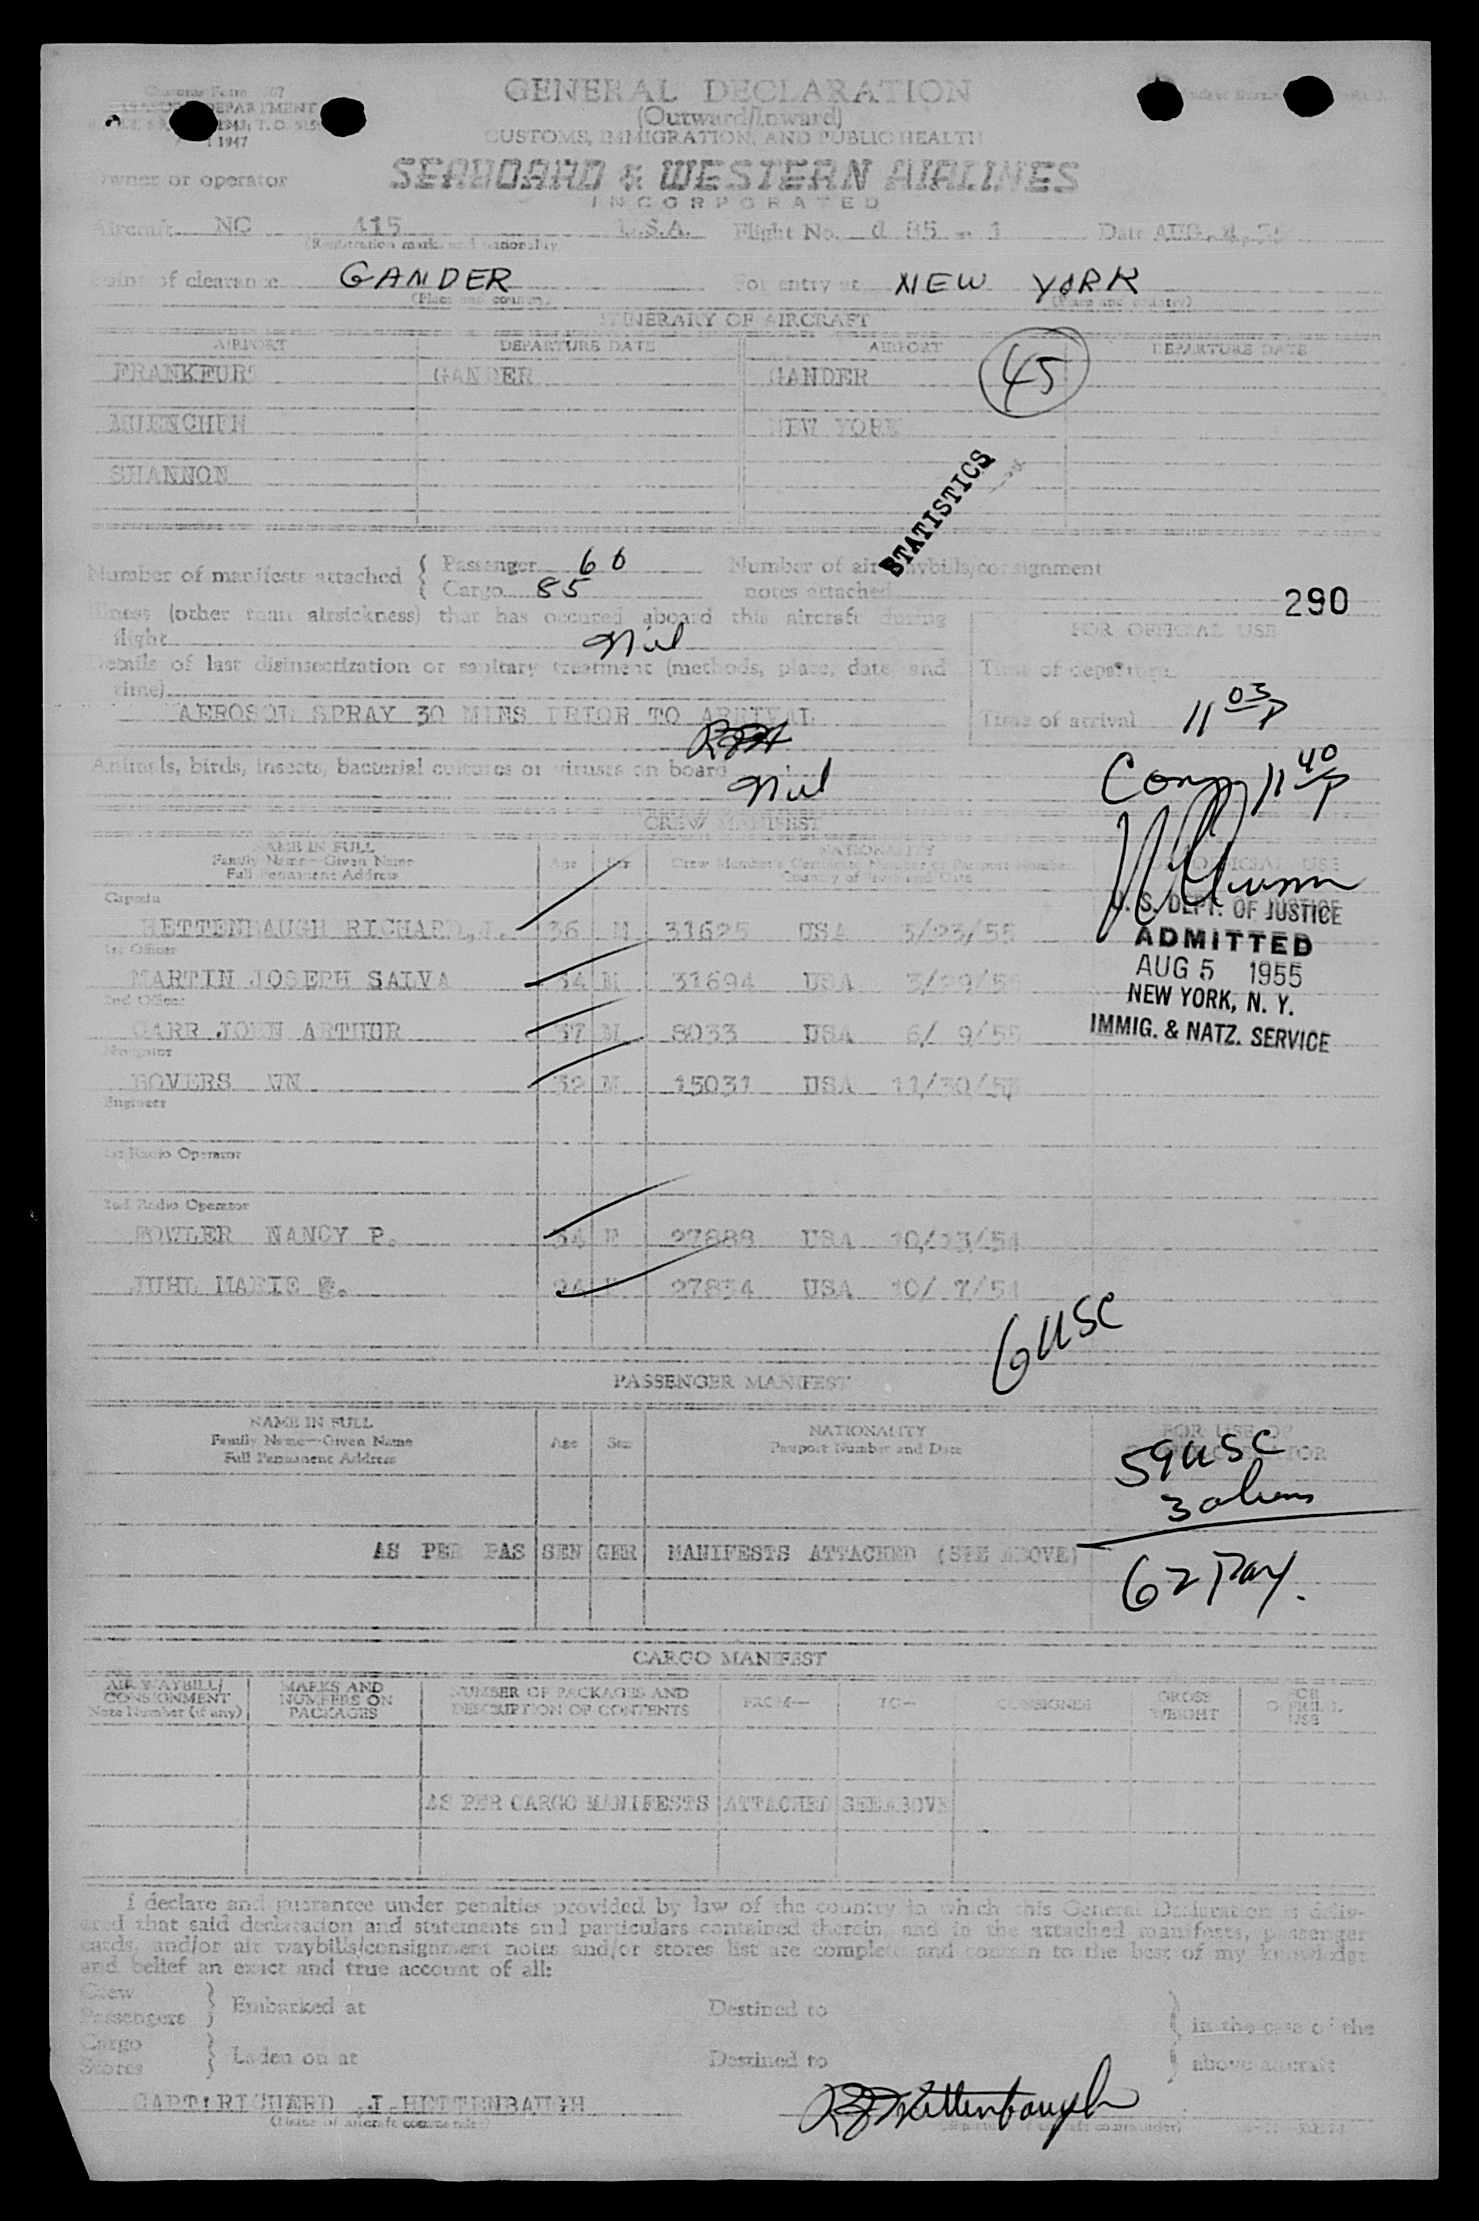 GENERAL DECLARATION
(Outward/Inward)
CUSTOMS, IMMIGRATION, AND PUBLIC HEALTH
1947
Owner or operator SEABOARD & WESTERN AIRLINES
INCORPORATED
Aircraft NC 415 U.S.A. Flight No. Date AUG. 4, 55
(Registration marks and nationality)
Point of clearance GANDER For entry at NEW YORK
(Place and country) (Place and country)
ITINERARY OF AIRCRAFT
AIRPORT DEPARTURE DATE AIRPORT DEPARTURE DATE
FRANKFURT GANDER GANDER 45
MUENCHEN NEW YORK
SHANNON
STATISTICS
Number of manifests attached { Passenger 60 Number of air waybills/consignment
Cargo 85 notes attached
290
Illness (other than airsickness) that has occured aboard this aircraft during
flight Nil
FOR OFFICIAL USE
Details of last disinsectization or sanitary treatment (methods, place, date and
time)
Time of departure
AEROSOL SPRAY 30 MINS PRIOR TO ARRIVAL
Time of arrival 11 03 P
Animals, birds, insects, bacterial cultures or viruses on board Nil
Comp 11 40 P
CREW MANIFEST
NAME IN FULL
Family Name—Given Name
Full Permanent Address
Age Sex
NATIONALITY
Crew Member's Certificate Number or Passport Number
Country of Issue and Date
OFFICIAL USE
Captain
HETTENBAUGH RICHARD, J. 36 M 31625 USA 3/23/55
1st Officer
MARTIN JOSEPH SALVA 34 M 31694 USA 3/29/55
2nd Officer
CARR JOHN ARTHUR 37 M 8033 USA 6/ 9/55
Navigator
BOVERS WN 32 M 15031 USA 11/30/53
Engineer
1st Radio Operator
2nd Radio Operator
FOWLER NANCY P. 34 F 27888 USA 10/13/54
JUHL MARIE 24 F 27834 USA 10/ 7/54
U. S. DEPT. OF JUSTICE
ADMITTED
AUG 5 1955
NEW YORK, N. Y.
IMMIG. & NATZ. SERVICE
6 USC
PASSENGER MANIFEST
NAME IN FULL
Family Name—Given Name
Full Permanent Address
Age Sex
NATIONALITY
Passport Number and Date
FOR USE OF
59 USC
3 aliens
AS PER PASSENGER MANIFESTS ATTACHED (SEE ABOVE)
62 Pax.
CARGO MANIFEST
AIR WAYBILL/
CONSIGNMENT
Note Number (if any)
MARKS AND
NUMBERS ON
PACKAGES
NUMBER OF PACKAGES AND
DESCRIPTION OF CONTENTS
FROM— TO— CONSIGNEE
GROSS
WEIGHT
FOR
OFFICIAL
USE
AS PER CARGO MANIFESTS ATTACHED SEE ABOVE
I declare and guarantee under penalties provided by law of the country in which this General Declaration is deliv-
ered that said declaration and statements and particulars contained therein, and in the attached manifests, passenger
cards, and/or air waybills/consignment notes and/or stores list are complete and contain to the best of my knowledge
and belief an exact and true account of all:
Crew
Passengers } Embarked at Destined to
Cargo
Stores } Laden on at Destined to
} in the case of the
above aircraft
CAPT: RICHARD J. HETTENBAUGH
(Name of aircraft commander)
RJ Hettenbaugh
(Signature of aircraft commander)